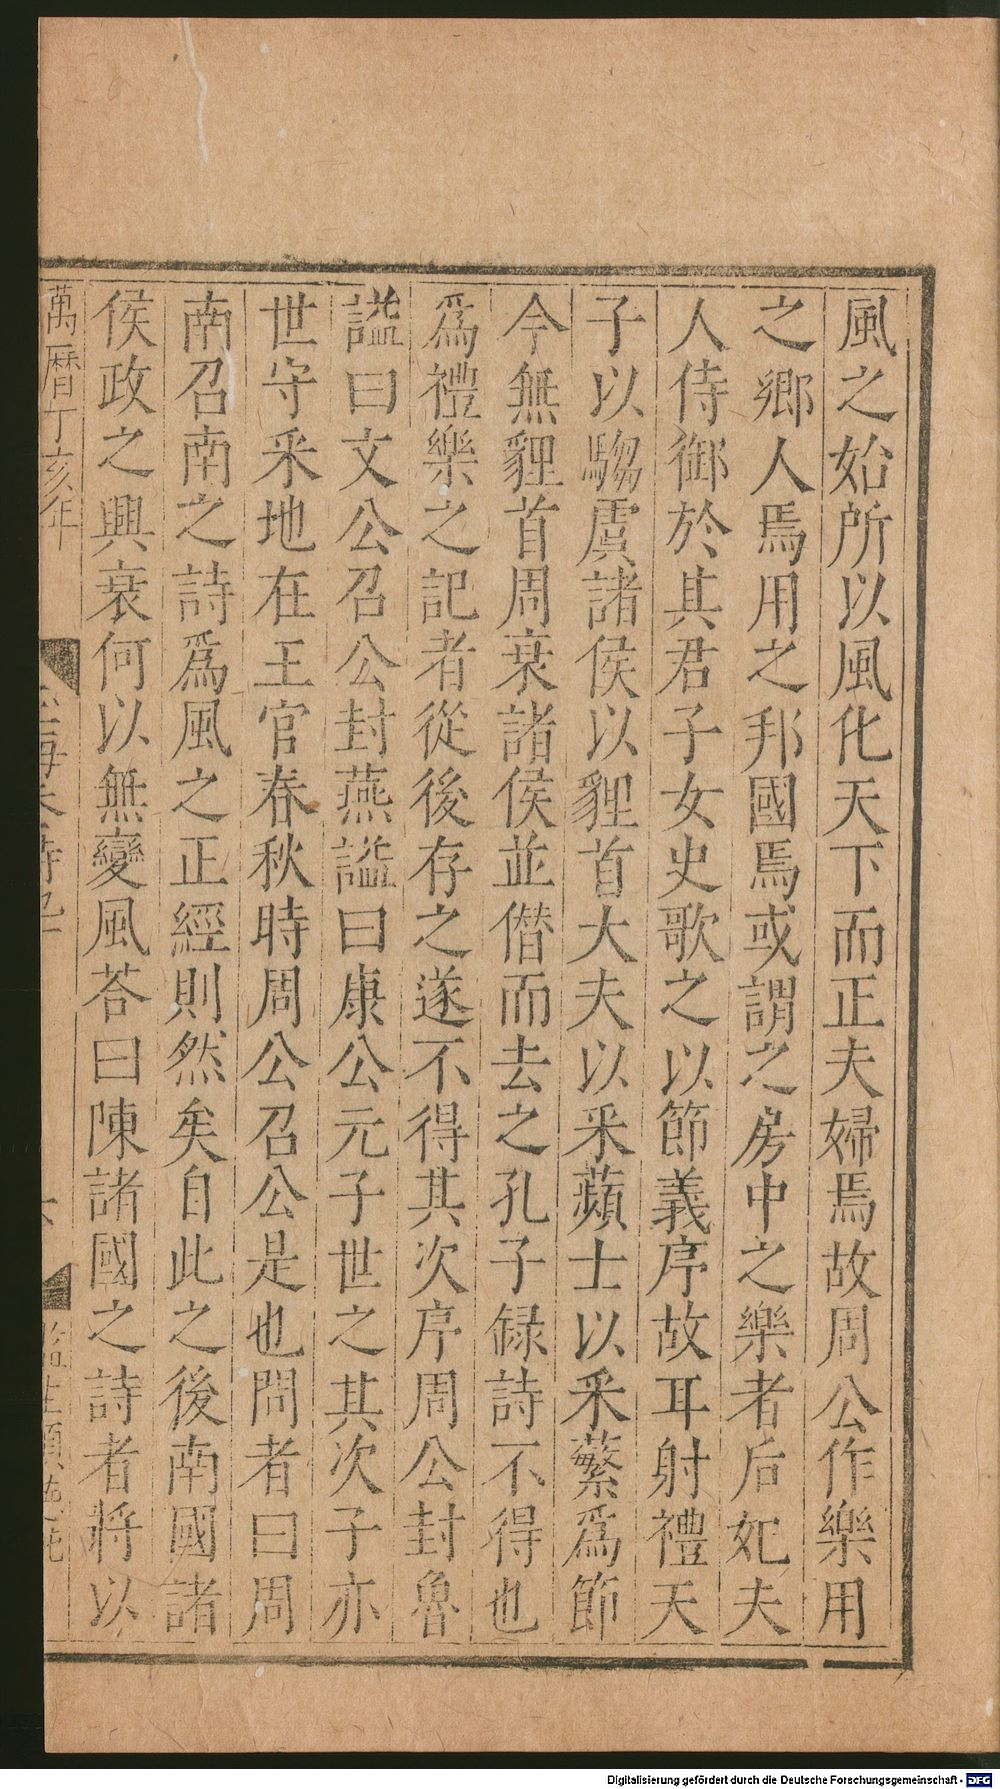 風之始所以風化天下而正夫婦焉故周公作樂用
之鄉人焉用之邦國焉或謂之房中之樂者后妃夫
人侍御於其君子女史歌之以節義序故耳射禮天
子以騶虞諸侯以貍首大夫以采蘋士以采蘩爲節
今無貍首周衰諸侯並僭而去之孔子録詩不得也
爲禮樂之記者從後存之遂不得其次序周公封魯
謚曰文公召公封燕謚曰康公元子世之其次子亦
世守采地在王官春秋時周公召公是也問者曰周
南召南之詩爲風之正經則然矣自此之後南國諸
侯政之興衰何以無變風荅曰陳諸國之詩者將以
萬曆丁亥年
Digitalisierung gefördert durch die Deutsche Forschungsgemeinschaft - DFG